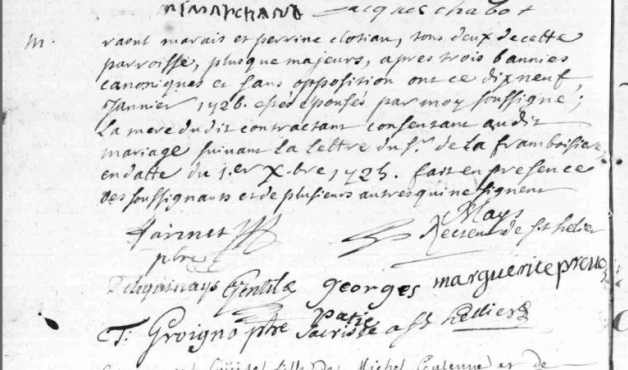 Marchand Jacques chabot
m. raoul marais et perrine clotiau, tous deux de cette
parroisse, plusque majeurs, apres trois bannies
canoniques et sans opposition ont ce dix neuf
Janvier 1726. esté epousés par moy soussigné;
La mere du dit contractant consentant au dit
mariage suivant la lettre du sr. de la framboisiere
en datte du 1.er X.bre 1725. fait en presence
des soussignants et de plusieurs autres qui ne signent
Jannet Mays
ptre Recteur de st helier
Gentil georges marguerite
T: Groigno ptre sacriste a st hellier